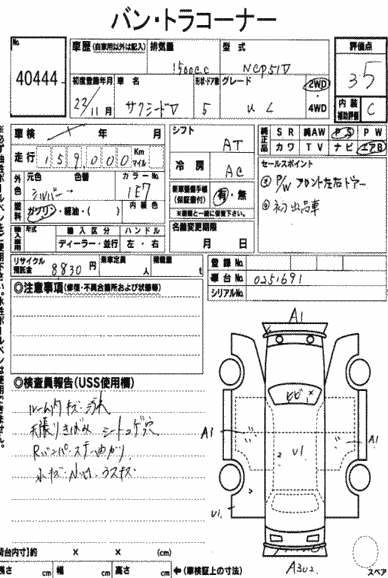 バン・トラコーナー
No.
40444
車歴 (自家用以外は記入)
排気量
型式
評価点
1500cc
NCP51V
3.5
初度登録年月
車名
形状・ドア数
グレード
22/11月
サクシードV
5
UL
2WD
4WD
内装補助評価
C
車検
年
月
シフト
AT
純正品
SR
純AW
PS
PW
カワ
TV
ナビ
エアB
走行
159000
Km
マイル
冷房
AC
セールスポイント
① P/W フロント左右ドアー
② 初出品車
外色
元色
色替
カラーNo.
シルバー
1E7
新車整備手帳
(保証書付)
有・無
※書類と一緒に保管下さい。
燃料
ガソリン・軽油・( )
内装色
輸入車用
年式
輸入区分
ハンドル
ディーラー・並行
左・右
名義変更期限
月
日
リサイクル預託金
8830円
乗車定員
人
積載量
t
登録No.
車台No.
0251691
シリアルNo.
◎注意事項 (修復・不具合箇所および状態等)
◎検査員報告 (USS使用欄)
ルーム内キズ・汚れ
天張りきばみ シートコゲ穴
A1
A1
A1
U1
U1.
A3U2.
(荷台内寸)約
×
×
(cm)
長さ
cm
幅
cm
高さ
cm
←(車検証上の寸法)
スペア